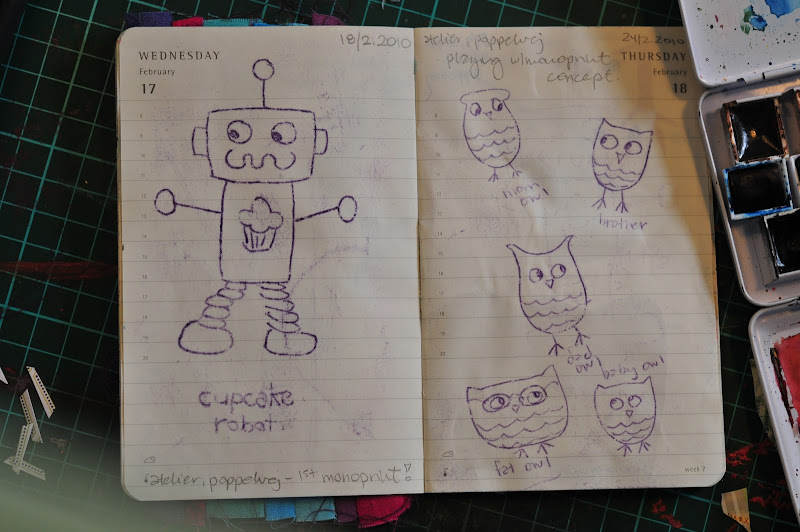 WEDNESDAY
February
17
18/2.2010
cupcake
robot.
atelier, pappelvej - 1st monoprint!
atelier, pappelvej
24/2.2010
playing w/monoprint
concept.
THURSDAY
February
18
mom
owl
brother
dad
owl
baby owl
fat owl
week 7